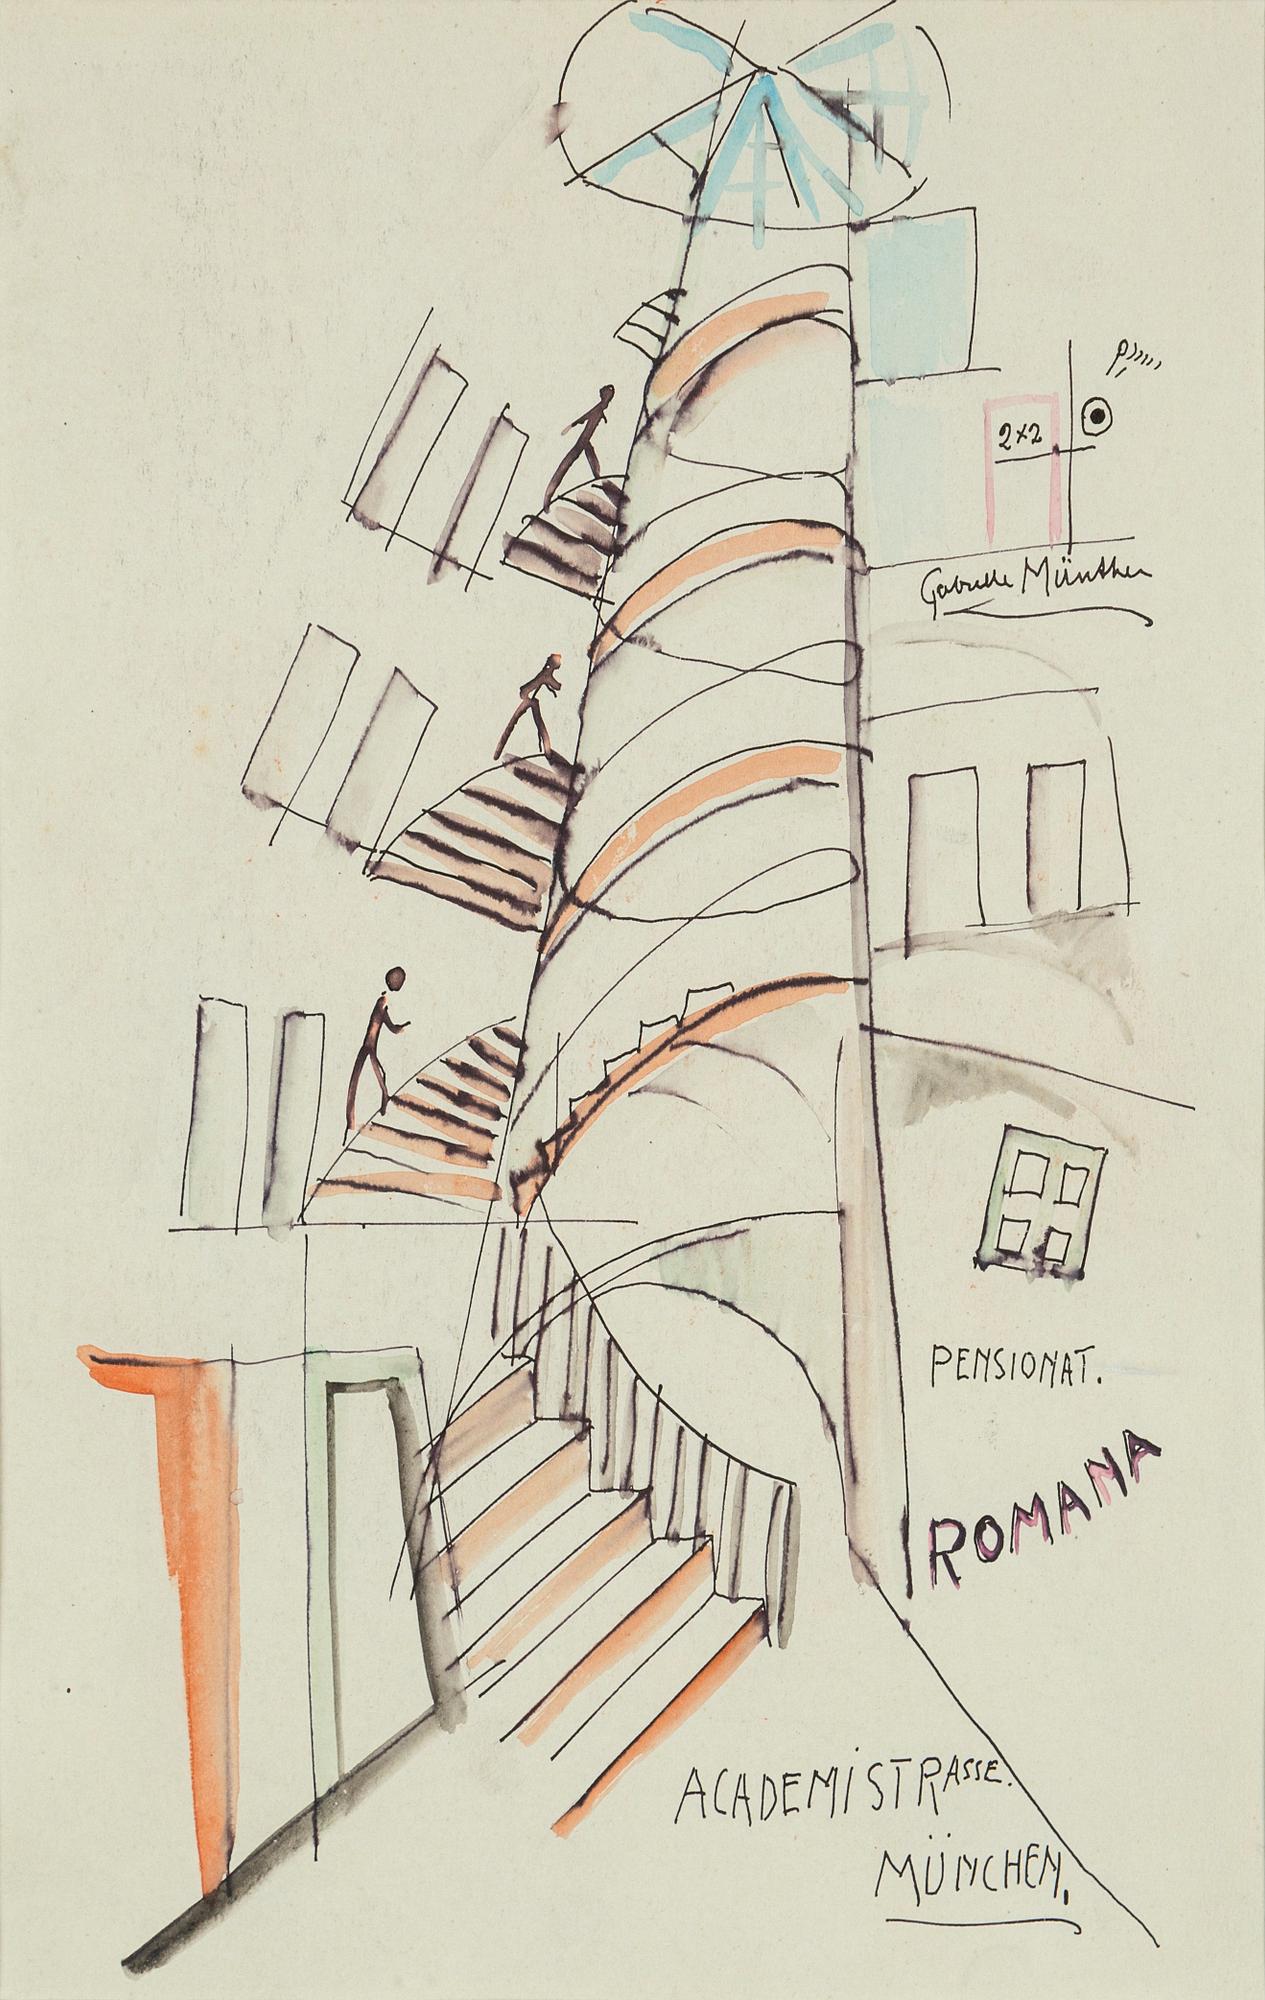 2×2
Gabrielle Münther
PENSIONAT.
ROMANA
ACADEMiSTRASSE.
MÜNCHEN.